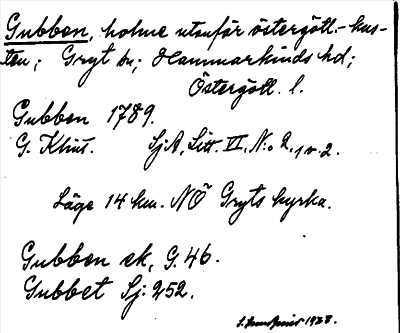 Gubben, holme utanför östergötl.-kus-
ten; Gryt sn; Hammarkinds hd;
Östergötl. l.
Gubben 1789.
G. Klint. SjA, Litt. VI, N:o 2, 1 o. 2.
Läge 14 km. NÖ Gryts kyrka.
Gubben ek, G. 46.
Gubbet Sj: 252.
1928.